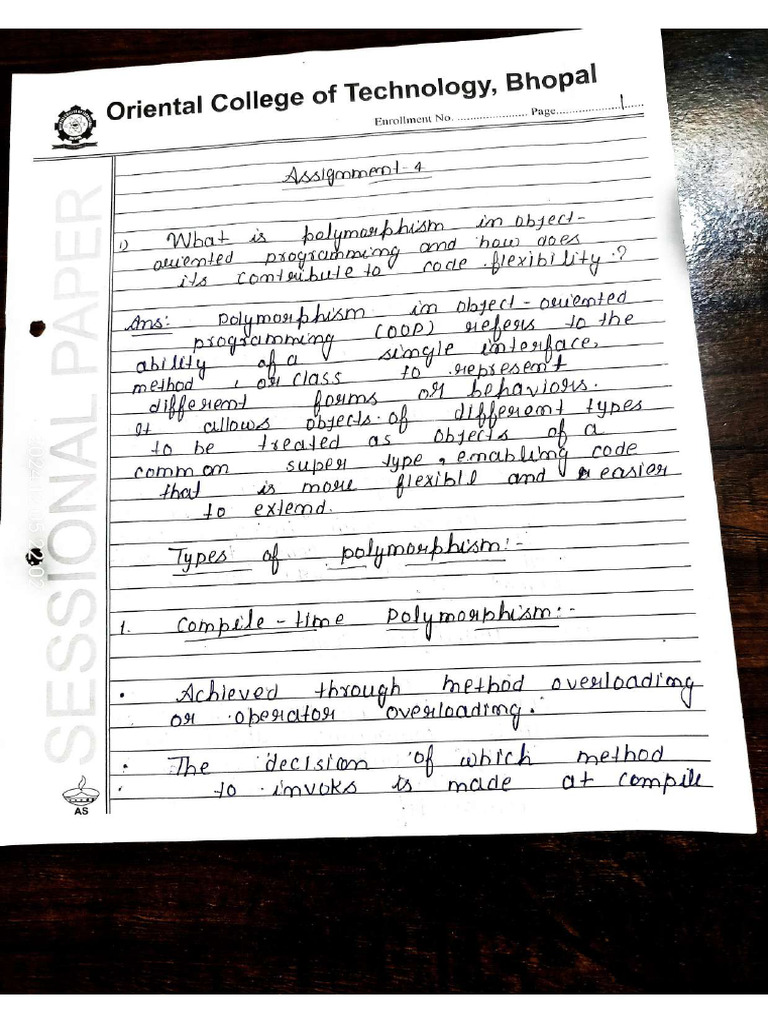 Oriental College of Technology, Bhopal
Enrollment No. ....................... Page.....................1......
Assignment-4
1) What is polymorphism in object-
oriented programming and how does
its contribute to code flexibility ?
Ans: Polymorphism in object-oriented
programming (OOP) refers to the
ability of a single interface,
method , or class to represent
different forms or behaviors.
It allows objects of different types
to be treated as objects of a
common super type, enabling code
that is more flexible and easier
to extend.
Types of polymorphism:-
1. Compile-time Polymorphism:-
• Achieved through method overloading
or operator overloading.
• The decision of which method
to invoks is made at compile
SESSIONAL PAPER
AS